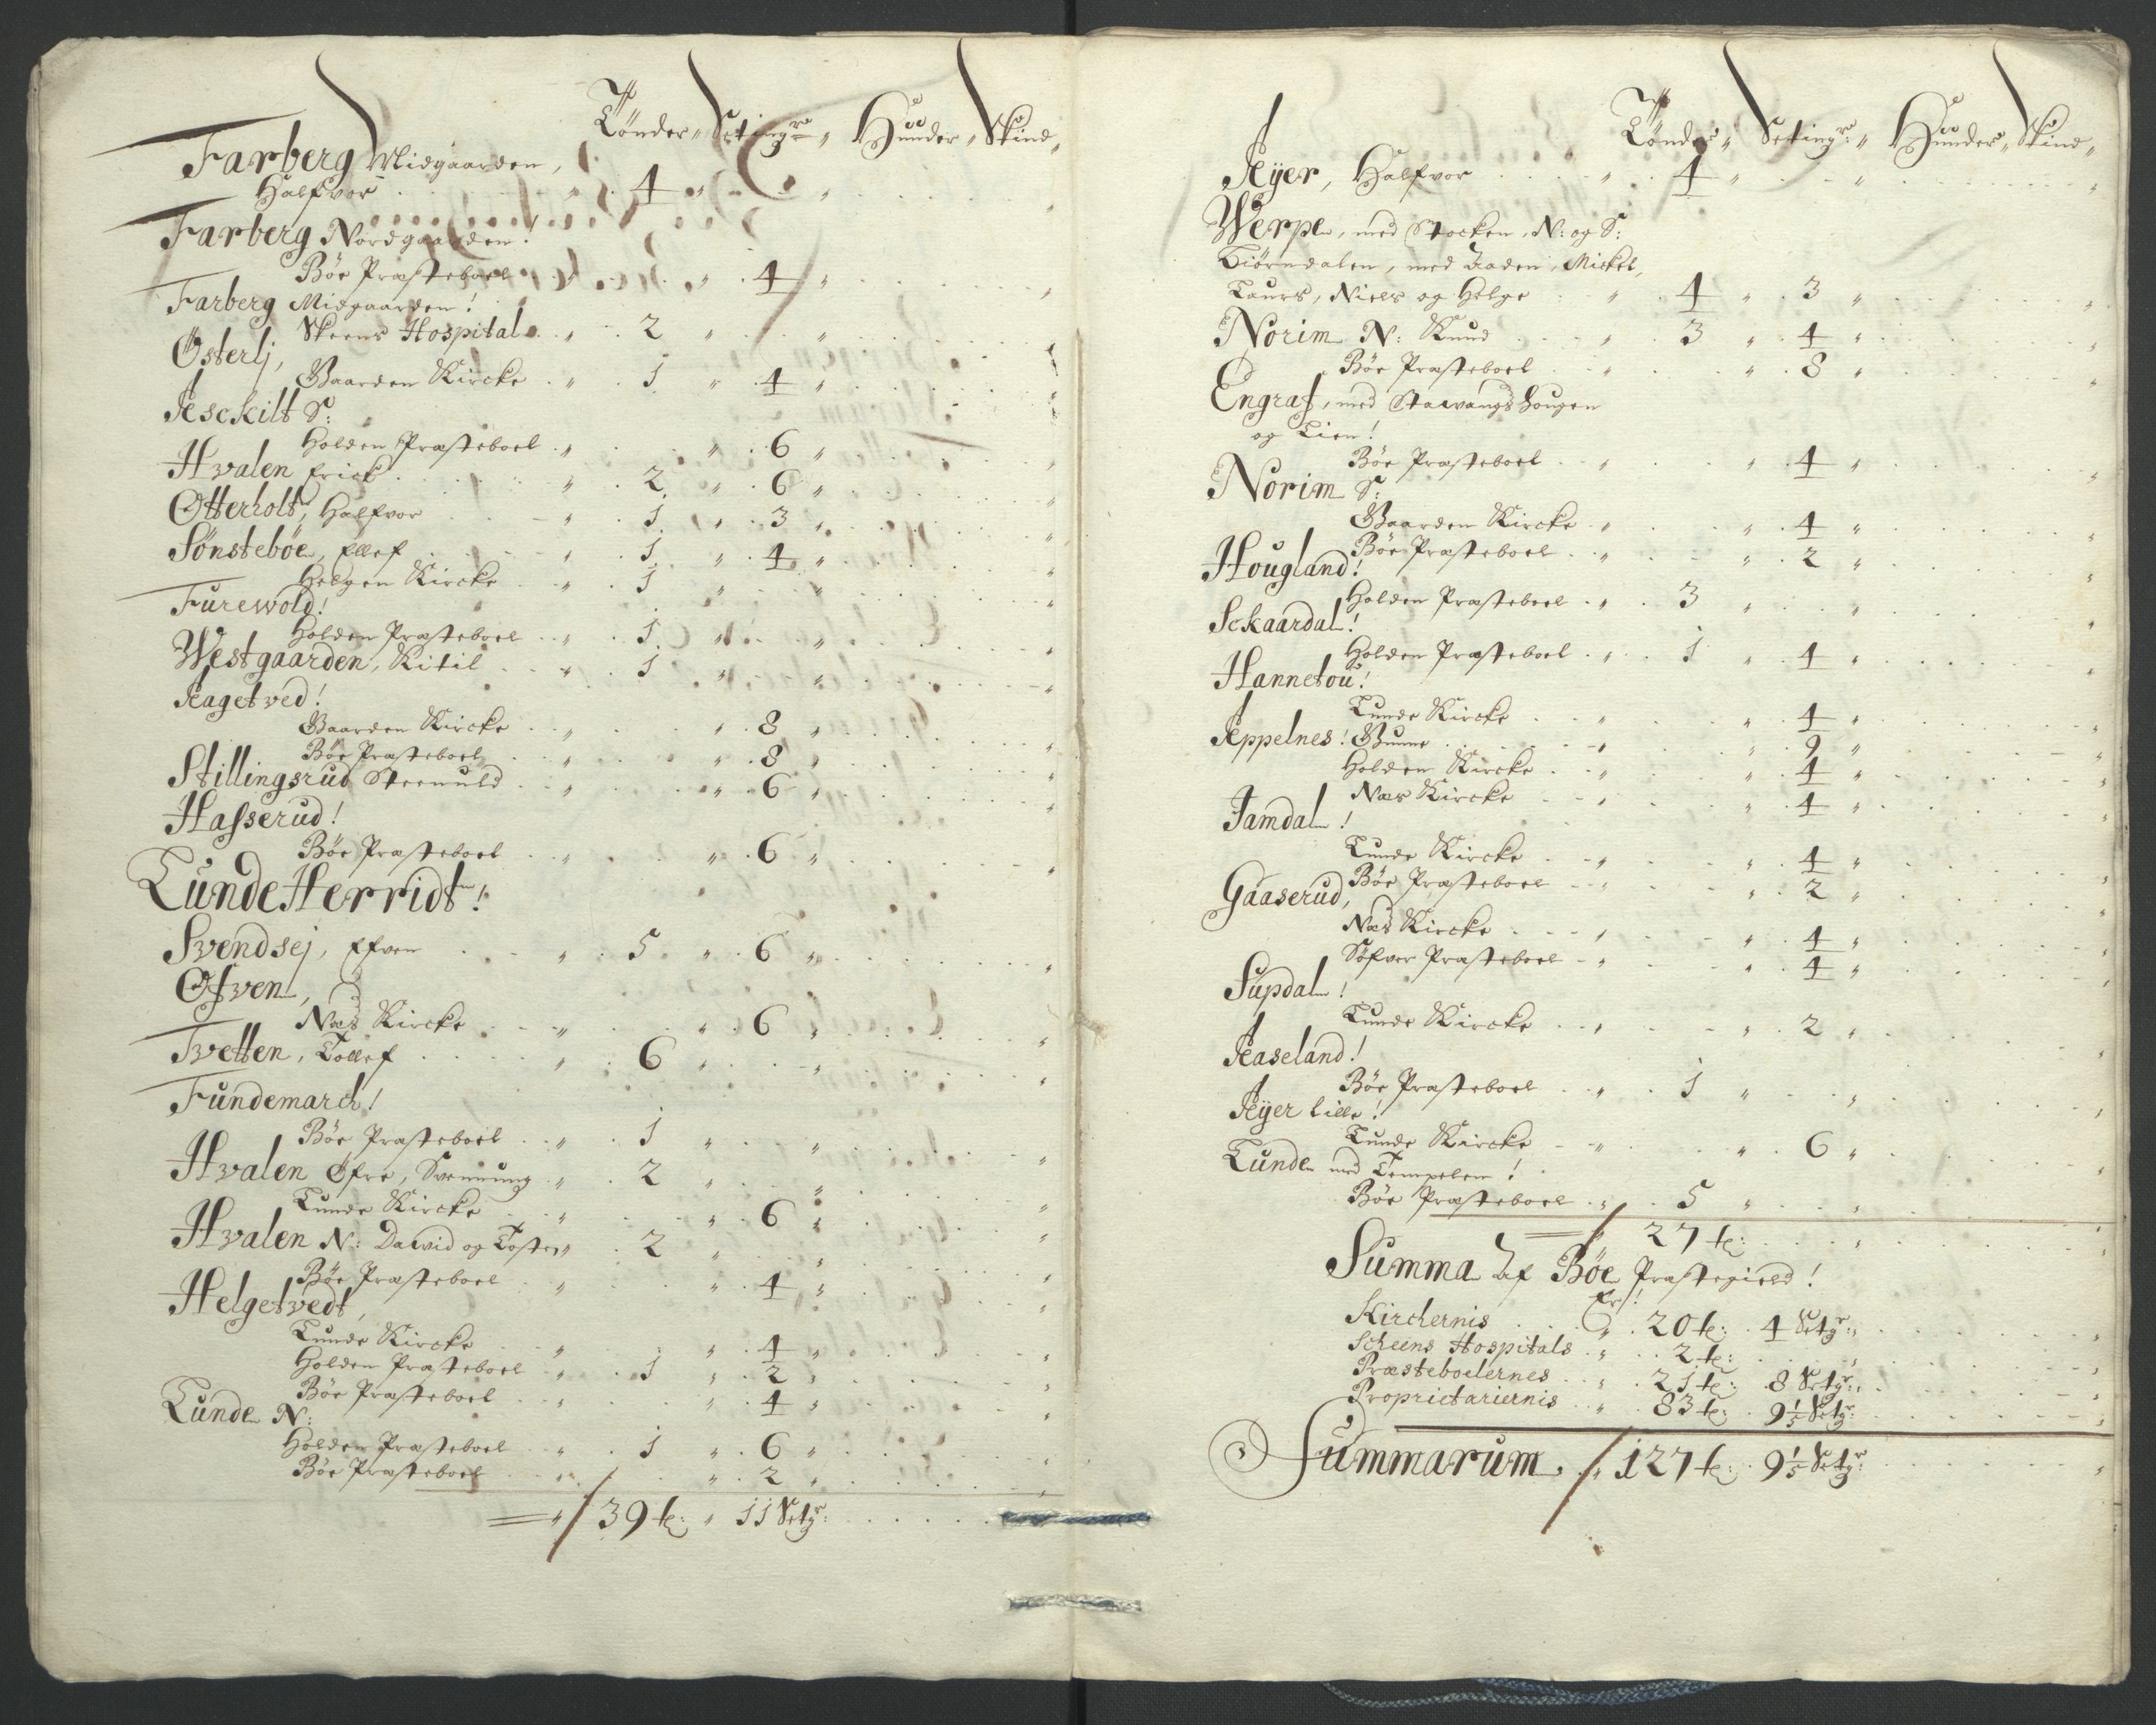 Tönder „ Setingr „ Huuder „ Skind „
Farberg Midgaarden,
Halfvor . . . „ . 4 „ . - . „
Farberg Nordgaarden!
Böe Præsteboel . „ . . „ . 4 „
Farberg Midgaarden!
Skeens Hospital . „ . 2 „ . . „
Österlj,
Gaarden Kircke . „ . 1 „ . 4 „
Aeskilt S:
Holden Præsteboel . „ . „ . 6 „
Hvalen Erick . . „ . 2 „ . 6 „
Otterholt, Halfvor . . „ . 1 „ . 3 „
Sönsteböe, Ellef . . „ . 1 „ . 4 „
Helgen Kircke . . „ . 1 „ . . „
Furewold!
Holden Præsteboel . „ . 1 „ . „
Westgaarden, Kitil . . „ . 1 „ . „
Aagetved!
Gaarden Kircke . . „ . . „ . 8 „
Böe Præsteboel . . „ . . „ . 8 „
Stillingsrud Steenuld . „ . . „ . 6 „
Hasserud!
Böe Præsteboel . „ . . „ . 6 „
Lunde Herridt!
Svendsej, Efven . . „ . 5 „ . 6 „
Ofven,
Næs Kircke . . „ . . „ . 6 „
Tvetten, Tollef . . . „ . 6 „ . . „
Fundemarch!
Böe Præsteboel . . „ . 1 „ . . „
Hvalen Öfre, Svennung . „ . 2 „ . . „
Lunde Kircke . . „ . . „ . 6 „
Hvalen N: David og Tosten „ . 2 „ . . „
Böe Præsteboel . . „ . . „ . 4 „
Helgetvedt,
Lunde Kircke . . „ . . „ . 4 „
Holden Præsteboel . „ . 1 „ . 2 „
Böe Præsteboel . . „ . . „ . 4 „
Lunde N:
Holden Præsteboel . „ . 1 „ . 6 „
Böe Præsteboel . „ . . „ . 2 „
„ / 39 t: „ 11 Setgr:
Tönder „ Setingr: „ Huuder „ Skind „
Aÿer, Halfvor . . . „ . 4 „ . - „
Werpe, med Stocken, N: og S:
Tiörndalen, med Haden, Mickel,
Laurs, Niels og Helge . . „ . 4 „ . 3 „
Norim N: Knud . . „ . 3 „ . 4 „
Böe Præsteboel . . „ . . „ . 8 „
Engraf, med Stavangs Hougen
og Lien!
Böe Præsteboel . . „ . . „ . 4 „
Norim S:
Gaarden Kircke . „ . . „ . 4 „
Böe Præsteboel . „ . . „ . 2 „
Hougland!
Holden Præsteboel . „ . 3 „ . . „
Sckaardal!
Holden Præsteboel . „ . 1 „ . 4 „
Hannetou!
Lunde Kircke . . „ . . „ . 4 „
Aeppelnes! Gunne . . . „ . . „ . 9 „
Holden Kircke . . „ . . „ . 4 „
Næs Kircke . . „ . . „ . 4 „
Jamdal!
Lunde Kircke . . „ . . „ . 4 „
Böe Præsteboel . . „ . . „ . 2 „
Gaaserud,
Næs Kircke . . . „ . . „ . 4 „
Söfver Præsteboel . „ . . „ . 4 „
Supdal!
Lunde Kircke . . „ . . „ . 2 „
Aaseland!
Böe Præsteboel . . „ . 1 „ . . „
Aÿer Lille!
Lunde Kircke . . „ . . „ . 6 „
Lunde med Tempelen!
Böe Præsteboel . „ . 5 „ . . „
/ 27 t: . . . „
Summa Af Böe Præstegield!
Er!
Kirchernis . . „ . 20 t: . 4 Setgr:
Scheens Hospitals . „ . 2 t: . . „
Præsteboelernes . . „ . 21 t: . 8 Setgr:
Proprietariernis . „ . 83 t: . 9 1/5 Setgr:
Summarum . „ / 127 t: . 9 1/5 Setgr: